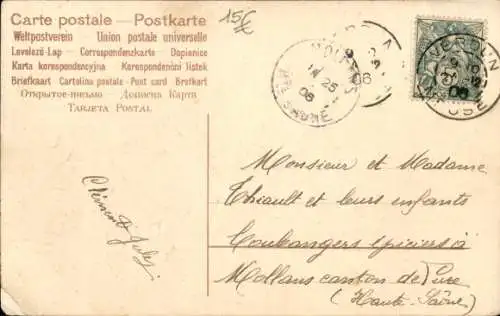 Carte postale — Postkarte
Weltpostverein — Union postale universelle
Levelező-Lap — Correspondenzkarte — Dopisnice
Karta korespondencyjna — Korespondenční lístek
Briefkaart — Cartolina postale — Post card — Brefkort
Открытое-письмо — Дописна Карта
TARJETA POSTAL
15€
06
VERDUN
MEUSE
MOLLANS
25
06
Hte SAONE
Clément Jules
Monsieur et Madame
Thiault et leurs enfants
épiciers à
Mollans canton de Lure
(Haute-Saône)